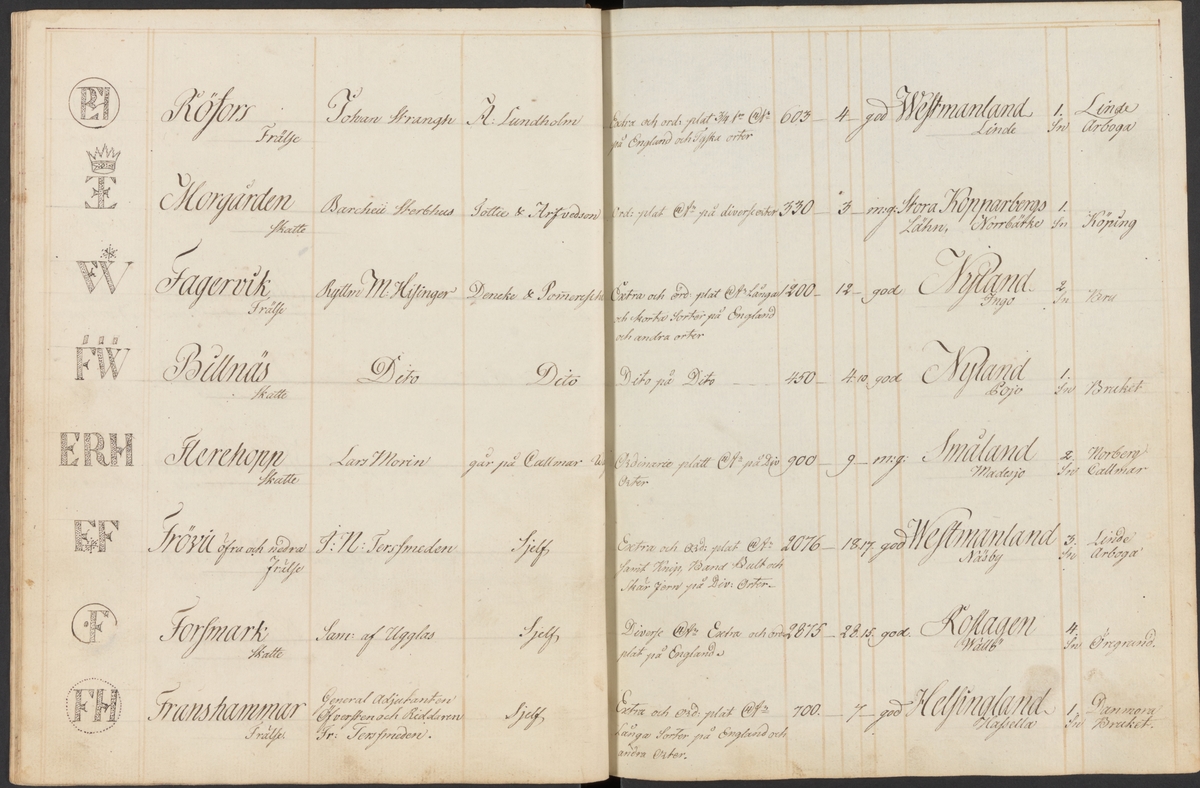 RH Röfors Johan Strangh A. Lundholm Extra och ord: plat 603 — 4 — god Westmanland 1. Linde
Frälse på England och Tyska orter Linde Sn Arboga
Morgården Barcheii Sterbhus & Arfvedson Ord: plat på diverse orter 330 — 3 — m:g: Stora Kopparbergs 1.
Skatte Lähn, Norrbärke Sn Köping
FW Fagervik Ryttm M: Hisinger Extra och ord: plat Långa 1200 — 12 — god Nyland 2.
Frälse och korta Sorter på England Ingo Sn
och andra orter
FW Billnäs Dito Dito Dito på Dito 450 — 4.10 god Nyland 1.
Skatte Pojo Sn Bruket
ERH Flerehopp Lars Morin går på Callmar Ordinarie platt på Div 900 — 9 — m:g: Småland 2. Norberg
Skatte Orter Madesjo Sn Callmar
EF Frövii öfra och nedra J: N: Tersmeden Sjelf Extra och Ord: plat 2076 — 18.17 god Westmanland 3. Linde
Frälse samt Knip, Band Bult och Näsby Sn Arboga
Skär Jern på Div: Orter.
F Forsmark Sam: af Ugglas Sjelf Diverse Extra och ord 2875 — 28.15. god. Roslagen 4.
Skatte plat på England. Wallb Sn Öregrund.
FH Franshammar General Adjutanten Sjelf Extra och ord: plat 700. — 7 — god Helsingland 1. Danmora
Frälse Öfversten och Riddaren Långa Sorter på England och Hassella Sn Bruket.
Fr: Tersmeden. andra orter.